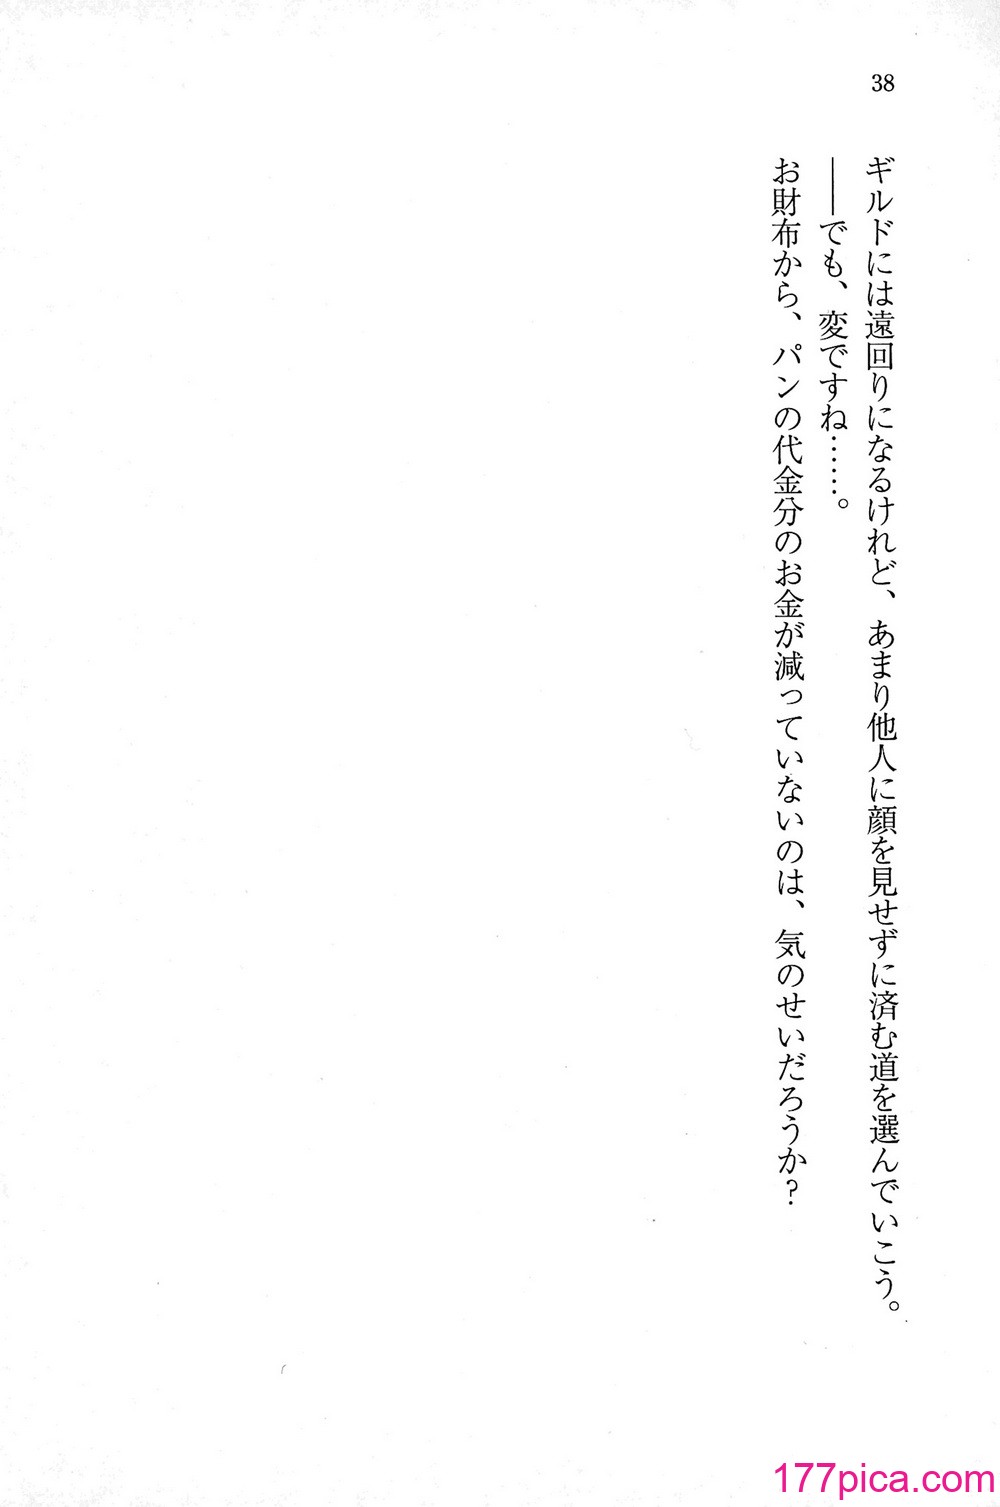 38
ギルドには遠回りになるけれど、あまり他人に顔を見せずに済む道を選んでいこう。
――でも、変ですね……。
お財布から、パンの代金分のお金が減っていないのは、気のせいだろうか？
177pica.com